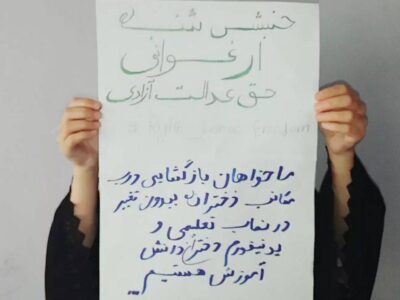 جنبش شنبه
ارغوانی
حق عدالت آزادی
Right Justice Freedom
ما خواهان بازگشایی درب
مکاتب دختران بدون تغییر
در نصاب تعلیمی و
یونیفورم دختران دانش
آموزش هستیم...